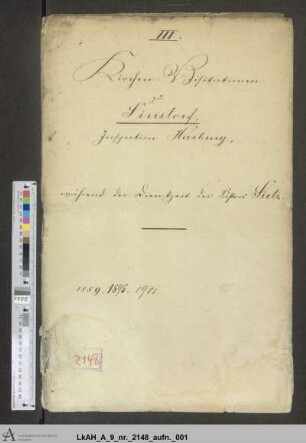 III.
Kirchen Visitationen
zu
Sinstorf,
Inspection Harburg,
während der Dienstzeit des Pastors
1889. 1895. 1901.
2148
LkAH_A_9_nr._2148_aufn._001